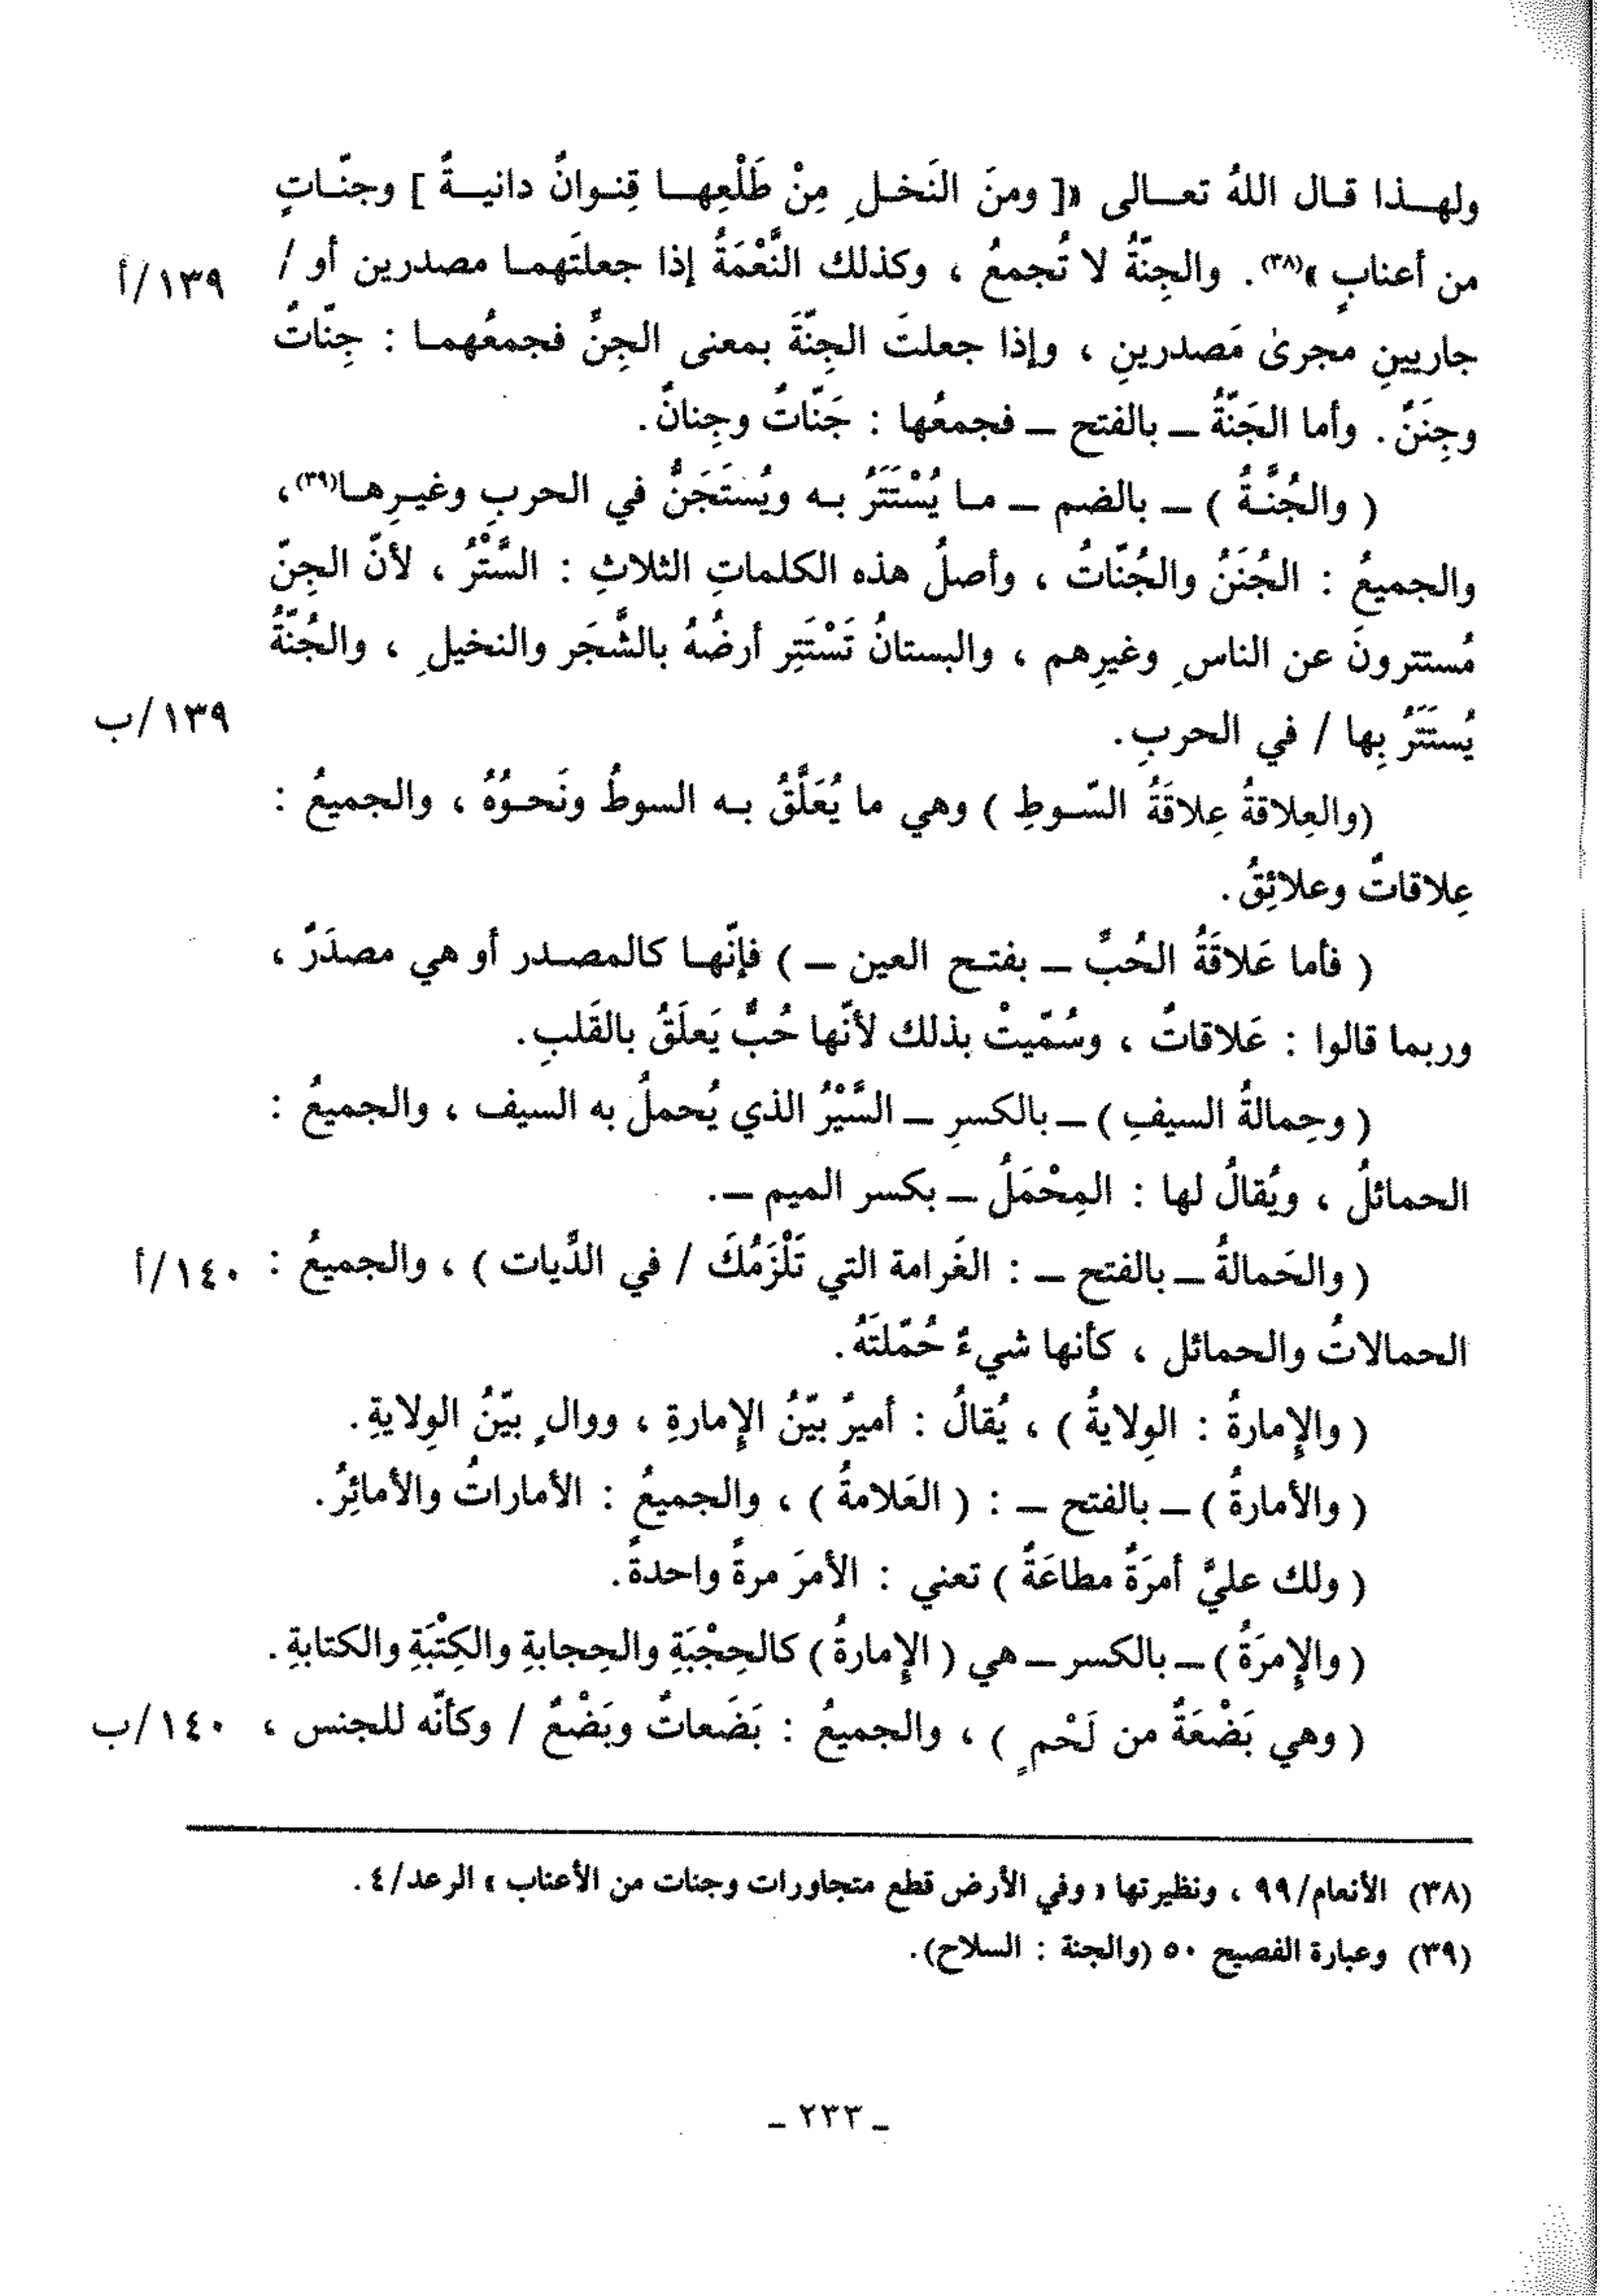 ولهـذا قـال اللهُ تعـالى «[ ومنَ النَخلِ مِنْ طَلْعِهـا قِنـوانٌ دانيـةٌ ] وجنّـاتٍ
من أعنابٍ »(٣٨). والجِنّةُ لا تُجمعُ ، وكذلك النَّعْمَةُ إذا جعلتَهما مصدرين أو / ١٣٩/أ
جاريينِ مجرىٰ مَصدرينِ ، وإذا جعلتَ الجِنّةَ بمعنى الجِنِّ فجمعُهما : جِنّاتٌ
وجِنَنٌ. وأما الجَنّةُ ــ بالفتح ــ فجمعُها : جَنّاتٌ وجِنانٌ.
( والجُنَّـةُ ) ــ بالضم ــ مـا يُسْتَتَرُ بـه ويُستَجَنُّ في الحربِ وغيـرِهـا(٣٩)،
والجميعُ : الجُنَنُ والجُنّاتُ ، وأصلُ هذه الكلماتِ الثلاثِ : السَّتْرُ ، لأنّ الجِنّ
مُستترونَ عن الناسِ وغيرِهم ، والبستانُ تَسْتَتِر أرضُهُ بالشَّجَر والنخيلِ ، والجُنّةُ
يُستَتَرُ بِها / في الحربِ. ١٣٩/ب
(والعِلاقةُ عِلاقَةُ السّـوطِ ) وهي ما يُعَلَّقُ بـه السوطُ ونَحـوُهُ ، والجميعُ :
عِلاقاتٌ وعلائِقُ.
( فأما عَلاقَةُ الحُبِّ ــ بفتـح العين ــ ) فإنّهـا كالمصـدر أو هي مصدَرٌ ،
وربما قالوا : عَلاقاتٌ ، وسُمّيتْ بذلك لأنّها حُبٌّ يَعلَقُ بالقَلبِ.
( وحِمالةُ السيفِ ) ــ بالكسرِ ــ السَّيْرُ الذي يُحملُ به السيف ، والجميعُ :
الحمائلُ ، ويُقالُ لها : المِحْمَلُ ــ بكسر الميم ــ.
( والحَمالةُ ــ بالفتح ــ : الغَرامة التي تَلْزَمُكَ / في الدِّيات ) ، والجميعُ : ١٤٠/أ
الحمالاتُ والحمائل ، كأنها شيءٌ حُمّلتَهُ.
( والإمارةُ : الوِلايةُ ) ، يُقالُ : أميرٌ بيّنُ الإمارةِ ، ووالٍ بيّنُ الوِلايةِ.
( والأمارةُ ) ــ بالفتح ــ : ( العَلامةُ ) ، والجميعُ : الأماراتُ والأمائِرُ.
( ولك عليَّ أمرَةٌ مطاعَةٌ ) تعني : الأمرَ مرةً واحدةً.
( والإمرَةُ ) ــ بالكسر ــ هي ( الإمارةُ ) كالحِجْبَةِ والحِجابةِ والكِتْبَةِ والكتابةِ.
( وهي بَضْعَةٌ من لَحْمٍ ) ، والجميعُ : بَضَعاتٌ وبَضْعٌ / وكأنّه للجنس ، ١٤٠/ب
(٣٨) الأنعام/٩٩ ، ونظيرتها « وفي الأرض قطع متجاورات وجنات من الأعناب » الرعد/٤.
(٣٩) وعبارة الفصيح ٥٠ (والجنة : السلاح).
ـ ٢٣٣ ـ